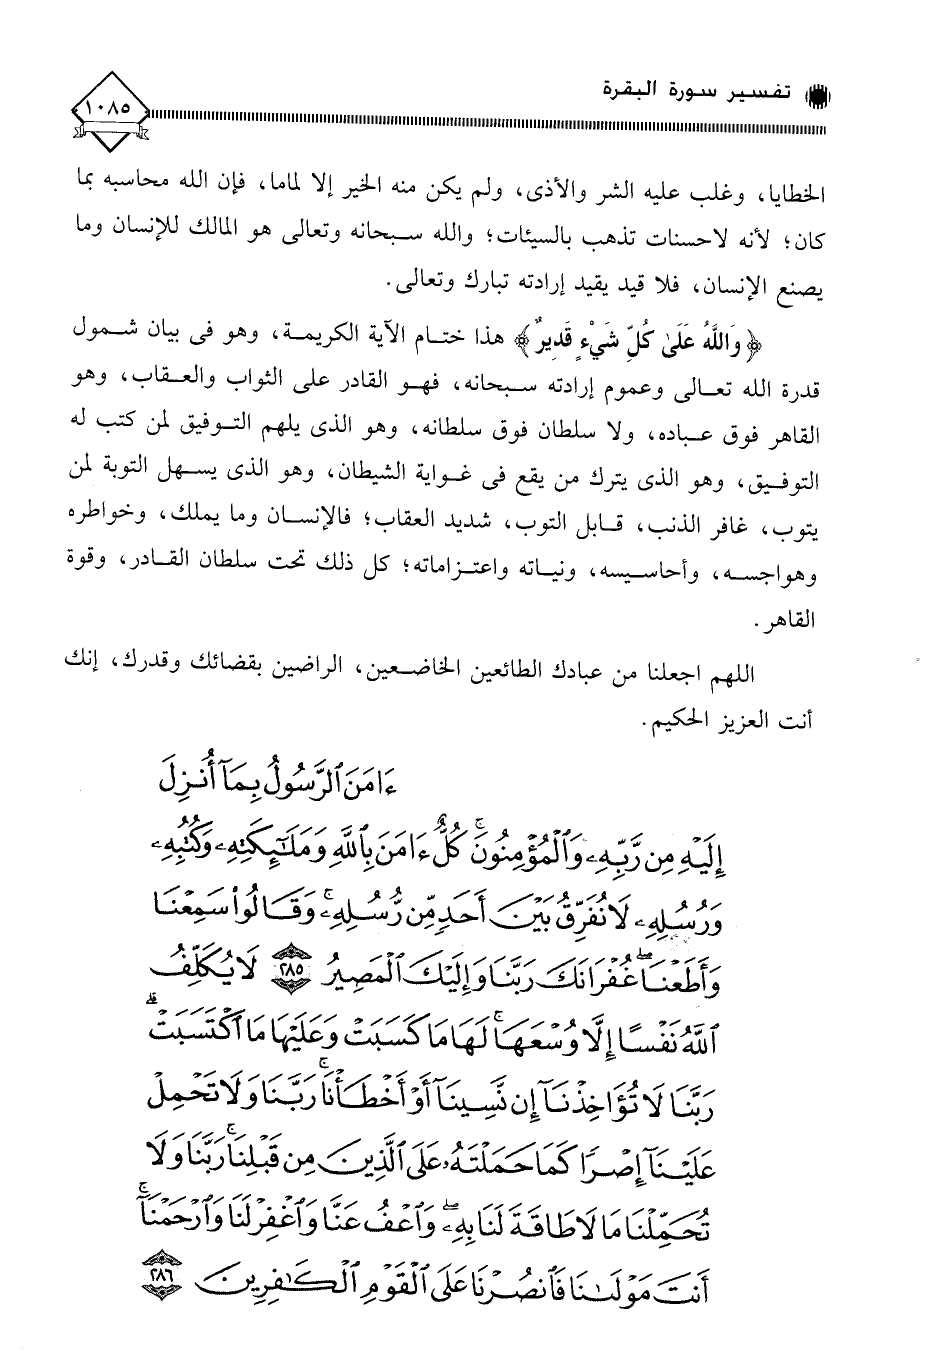 تفسير سورة البقرة
١٠٨٥
الخطايا، وغلب عليه الشر والأذى، ولم يكن منه الخير إلا لماما، فإن الله محاسبه بما
كان؛ لأنه لاحسنات تذهب بالسيئات؛ والله سبحانه وتعالى هو المالك للإنسان وما
يصنع الإنسان، فلا قيد يقيد إرادته تبارك وتعالى.
﴿وَاللَّهُ عَلَىٰ كُلِّ شَيْءٍ قَدِيرٌ﴾ هذا ختام الآية الكريمة، وهو فى بيان شمول
قدرة الله تعالى وعموم إرادته سبحانه، فهو القادر على الثواب والعقاب، وهو
القاهر فوق عباده، ولا سلطان فوق سلطانه، وهو الذى يلهم التوفيق لمن كتب له
التوفيق، وهو الذى يترك من يقع فى غواية الشيطان، وهو الذى يسهل التوبة لمن
يتوب، غافر الذنب، قابل التوب، شديد العقاب؛ فالإنسان وما يملك، وخواطره
وهواجسه، وأحاسيسه، ونياته واعتزاماته؛ كل ذلك تحت سلطان القادر، وقوة
القاهر.
اللهم اجعلنا من عبادك الطائعين الخاضعين، الراضين بقضائك وقدرك، إنك
أنت العزيز الحكيم.
ءَامَنَ ٱلرَّسُولُ بِمَآ أُنزِلَ
إِلَيْهِ مِن رَّبِّهِۦ وَٱلْمُؤْمِنُونَۚ كُلٌّ ءَامَنَ بِٱللَّهِ وَمَلَـٰٓئِكَتِهِۦ وَكُتُبِهِۦ
وَرُسُلِهِۦ لَا نُفَرِّقُ بَيْنَ أَحَدٍ مِّن رُّسُلِهِۦۚ وَقَالُوا۟ سَمِعْنَا
وَأَطَعْنَاۖ غُفْرَانَكَ رَبَّنَا وَإِلَيْكَ ٱلْمَصِيرُ ٢٨٥ لَا يُكَلِّفُ
ٱللَّهُ نَفْسًا إِلَّا وُسْعَهَاۚ لَهَا مَا كَسَبَتْ وَعَلَيْهَا مَا ٱكْتَسَبَتْۗ
رَبَّنَا لَا تُؤَاخِذْنَآ إِن نَّسِينَآ أَوْ أَخْطَأْنَاۚ رَبَّنَا وَلَا تَحْمِلْ
عَلَيْنَآ إِصْرًا كَمَا حَمَلْتَهُۥ عَلَى ٱلَّذِينَ مِن قَبْلِنَاۚ رَبَّنَا وَلَا
تُحَمِّلْنَا مَا لَا طَاقَةَ لَنَا بِهِۦۖ وَٱعْفُ عَنَّا وَٱغْفِرْ لَنَا وَٱرْحَمْنَآۚ
أَنتَ مَوْلَىٰنَا فَٱنصُرْنَا عَلَى ٱلْقَوْمِ ٱلْكَـٰفِرِينَ ٢٨٦